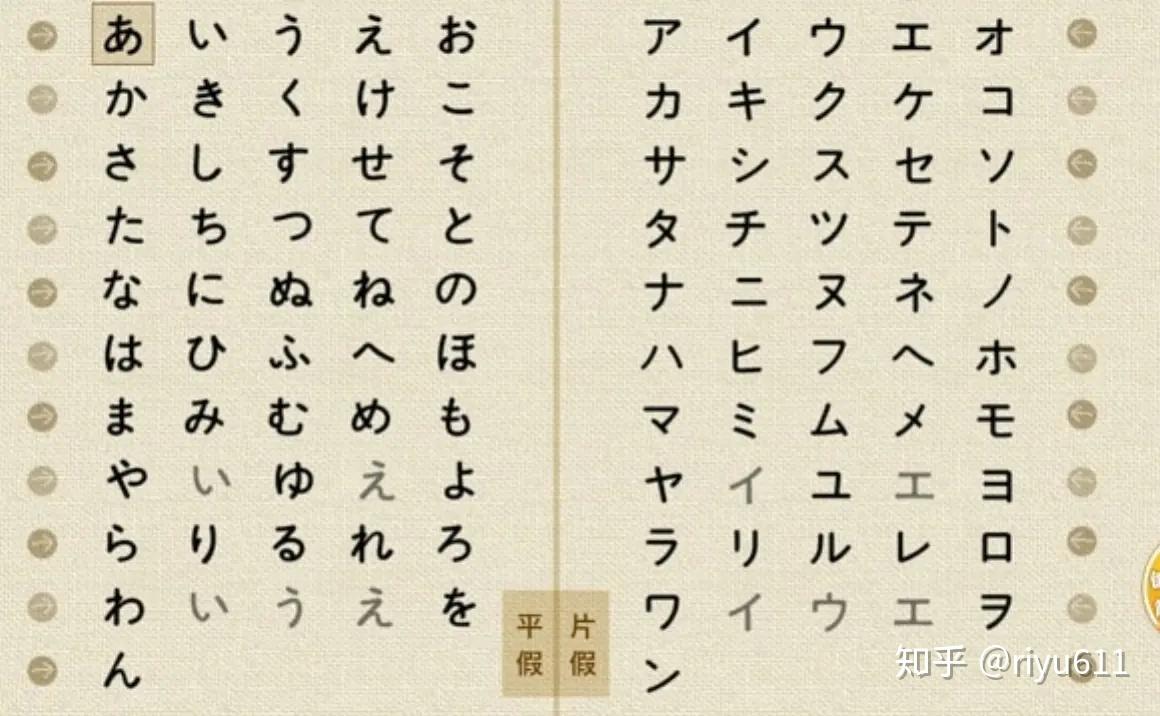 あ い う え お
か き く け こ
さ し す せ そ
た ち つ て と
な に ぬ ね の
は ひ ふ へ ほ
ま み む め も
や い ゆ え よ
ら り る れ ろ
わ い う え を
ん
平假
ア イ ウ エ オ
カ キ ク ケ コ
サ シ ス セ ソ
タ チ ツ テ ト
ナ ニ ヌ ネ ノ
ハ ヒ フ ヘ ホ
マ ミ ム メ モ
ヤ イ ユ エ ヨ
ラ リ ル レ ロ
ワ イ ウ エ ヲ
ン
片假
知乎 @riyu611